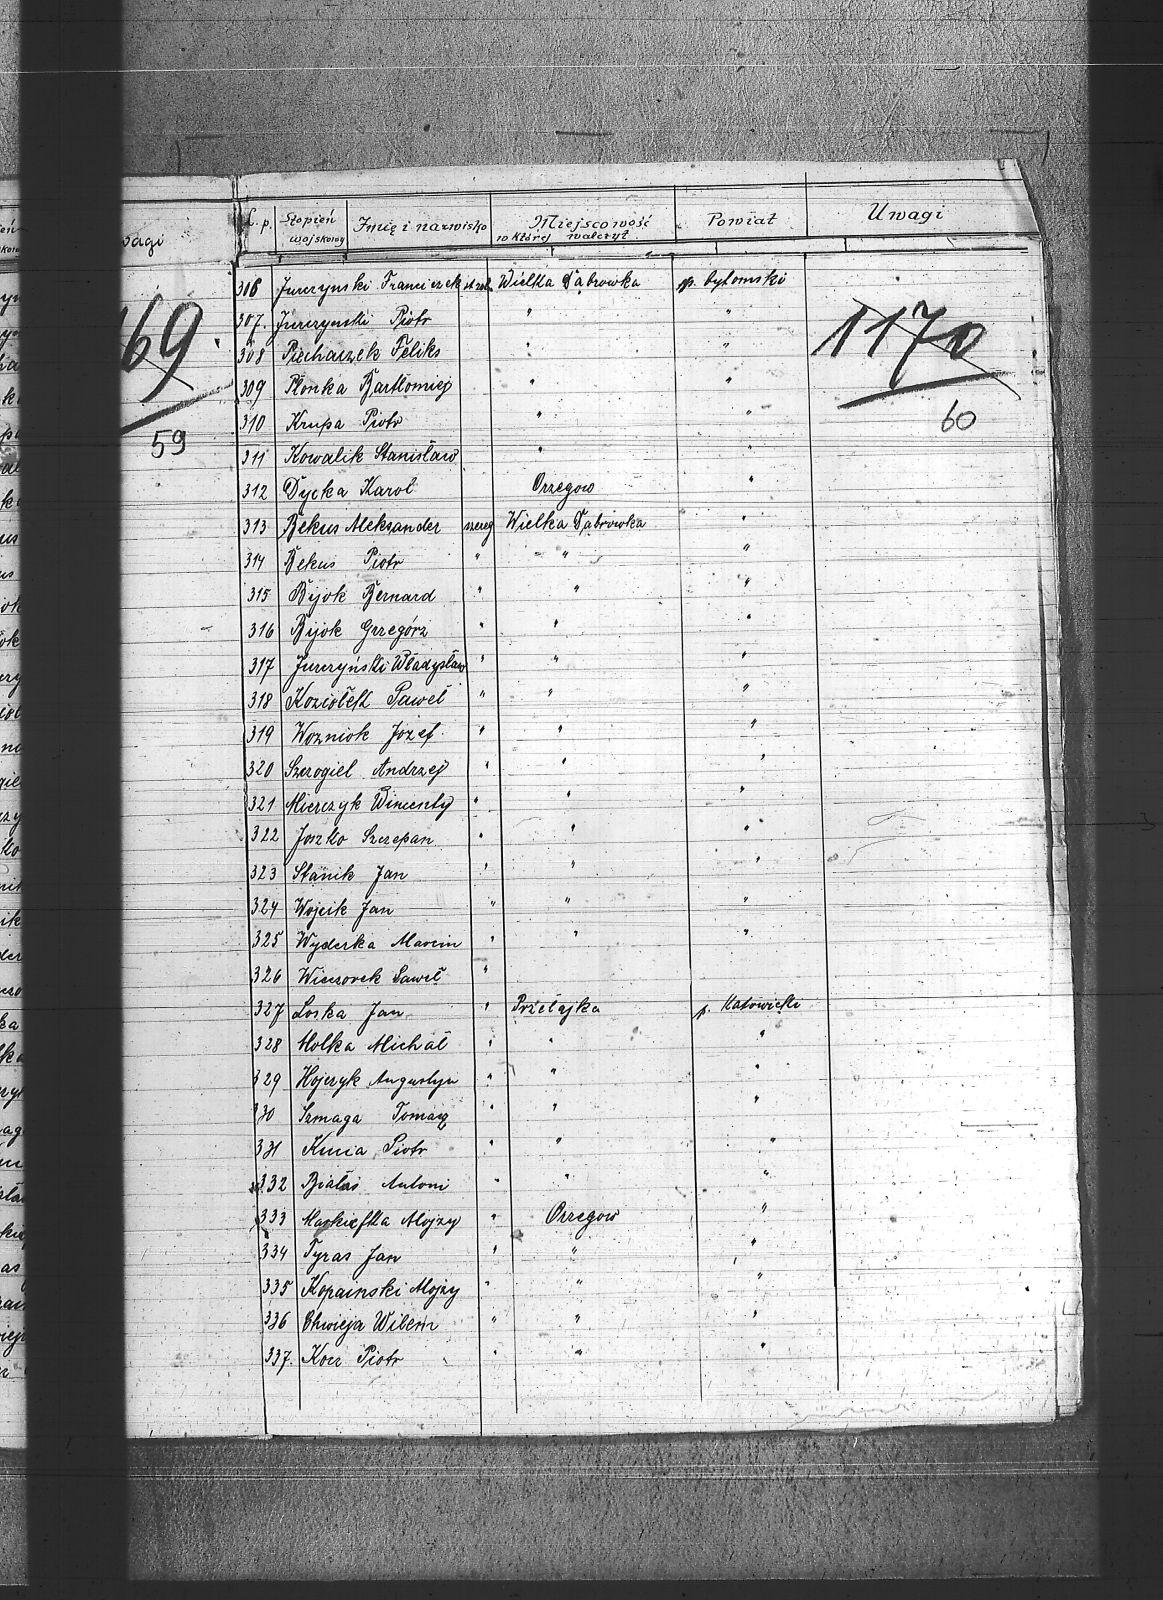 L. p. Stopień wojskowy Imię i nazwisko Miejscowość w której walczył Powiat Uwagi
306 Jurczynski Franciszek strzel. Wielka Dąbrowka p. bytomski
307. Jurczynski Piotr " "
308 Piecharzek Feliks " "
309 Płonka Bartłomiej " "
310 Krupa Piotr " "
311 Kowalik Stanisław " "
312 Dycka Karol Orzegow "
313 Bekus Aleksander szereg Wielka Dąbrowka "
314 Bekus Piotr " " "
315 Bijok Bernard " " "
316 Bijok Grzegórz " " "
317 Jurczyński Władysław " " "
318 Koziołek Paweł " " "
319 Wozniok Józef. " " "
320 Szczogiel Andrzej " " "
321 Mierczyk Wincenty " " "
322 Joszko Szczepan " " "
323 Stanik Jan " " "
324 Wojcik Jan " " "
325 Wyderka Marcin " " "
326 Wieczorek Paweł "
327 Loska Jan " Przełajka p. Katowicki
328 Molka Michał " " "
329 Hojczyk Augustyn " " "
330 Szmaga Tomasz " " "
331 Kunia Piotr " " "
332 Białas Antoni " " "
333 Markiefka Alojzy " Orzegow "
334 Tyras Jan " " "
335 Kopainski Alojzy " " "
336 Chwieja Wilem " " "
337. Kocz Piotr " " "
1170
60
69.
59